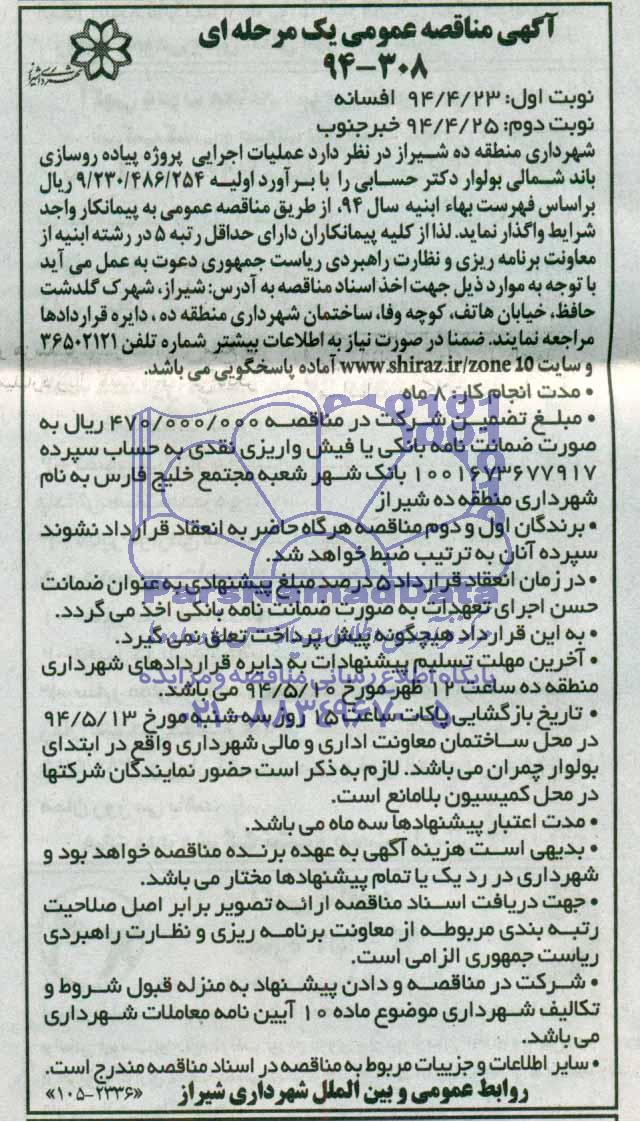 آگهی مناقصه عمومی یک مرحله ای
۹۴-۳۰۸
شهرداری شیراز
نوبت اول: ۹۴/۴/۲۳ افسانه
نوبت دوم: ۹۴/۴/۲۵ خبرجنوب
شهرداری منطقه ده شیراز در نظر دارد عملیات اجرایی پروژه پیاده روسازی
باند شمالی بولوار دکتر حسابی را با برآورد اولیه ۹/۲۳۰/۴۸۶/۲۵۴ ریال
براساس فهرست بهاء ابنیه سال ۹۴، از طریق مناقصه عمومی به پیمانکار واجد
شرایط واگذار نماید. لذا از کلیه پیمانکاران دارای حداقل رتبه ۵ در رشته ابنیه از
معاونت برنامه ریزی و نظارت راهبردی ریاست جمهوری دعوت به عمل می آید
با توجه به موارد ذیل جهت اخذ اسناد مناقصه به آدرس: شیراز، شهرک گلدشت
حافظ، خیابان هاتف، کوچه وفا، ساختمان شهرداری منطقه ده، دایره قراردادها
مراجعه نمایند. ضمنا در صورت نیاز به اطلاعات بیشتر شماره تلفن ۳۶۵۰۲۱۲۱
و سایت www.shiraz.ir/zone 10 آماده پاسخگویی می باشد.
• مدت انجام کار: ۸ ماه
• مبلغ تضمین شرکت در مناقصه ۴۷۰/۰۰۰/۰۰۰ ریال به
صورت ضمانت نامه بانکی یا فیش واریزی نقدی به حساب سپرده
۱۰۰۱۶۷۳۶۷۷۹۱۷ بانک شهر شعبه مجتمع خلیج فارس به نام
شهرداری منطقه ده شیراز
• برندگان اول و دوم مناقصه هرگاه حاضر به انعقاد قرارداد نشوند
سپرده آنان به ترتیب ضبط خواهد شد.
• در زمان انعقاد قرارداد ۵ درصد مبلغ پیشنهادی به عنوان ضمانت
حسن اجرای تعهدات به صورت ضمانت نامه بانکی اخذ می گردد.
ParsNamadData
• به این قرارداد هیچگونه پیش پرداخت تعلق نمی گیرد.
• آخرین مهلت تسلیم پیشنهادات به دایره قراردادهای شهرداری
پایگاه اطلاع رسانی مناقصه و مزایده
منطقه ده ساعت ۱۲ ظهر مورخ ۹۴/۵/۱۰ می باشد.
۰۲۱-۸۸۳۴۹۶۷۰-۵
• تاریخ بازگشایی پاکات ساعت ۱۵ روز سه شنبه مورخ ۹۴/۵/۱۳
در محل ساختمان معاونت اداری و مالی شهرداری واقع در ابتدای
بولوار چمران می باشد. لازم به ذکر است حضور نمایندگان شرکتها
در محل کمیسیون بلامانع است.
• مدت اعتبار پیشنهادها سه ماه می باشد.
• بدیهی است هزینه آگهی به عهده برنده مناقصه خواهد بود و
شهرداری در رد یک یا تمام پیشنهادها مختار می باشد.
• جهت دریافت اسناد مناقصه ارائه تصویر برابر اصل صلاحیت
رتبه بندی مربوطه از معاونت برنامه ریزی و نظارت راهبردی
ریاست جمهوری الزامی است.
• شرکت در مناقصه و دادن پیشنهاد به منزله قبول شروط و
تکالیف شهرداری موضوع ماده ۱۰ آیین نامه معاملات شهرداری
می باشد.
• سایر اطلاعات و جزییات مربوط به مناقصه در اسناد مناقصه مندرج است.
روابط عمومی و بین الملل شهرداری شیراز «۱۰۵-۲۳۳۶»